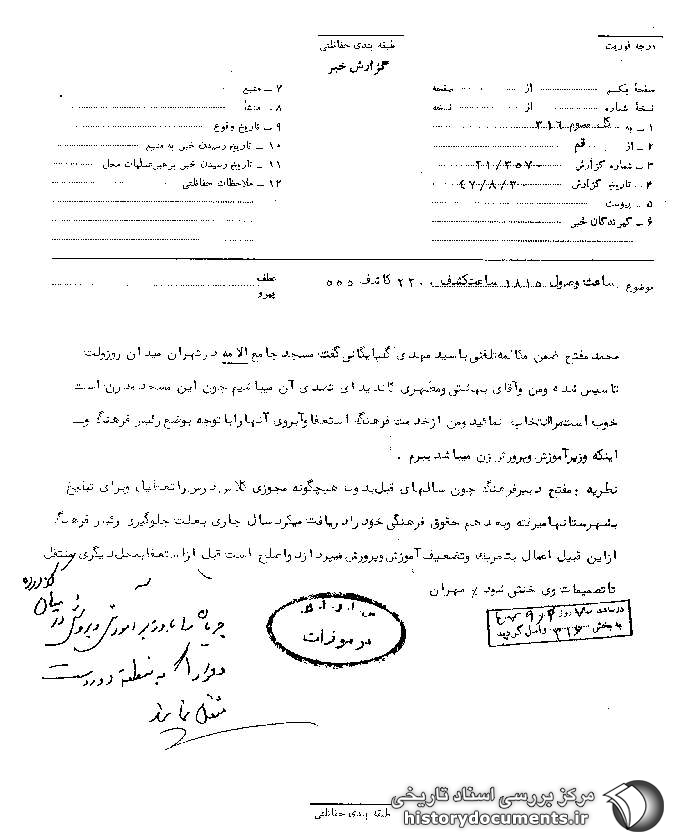 درجه فوریت
طبقه بندی حفاظتی
گزارش خبر
صفحهٔ یکم از صفحه
نسخهٔ شماره از نسخه
۱ – به کل سوم ۳۱۶
۲ – از قم
۳ – شماره گزارش ۲۱/۳۵۷۰
۴ – تاریخ گزارش ۴۷/۸/۳۰
۵ – پیوست
۶ – گیرندگان خبر
۷ – منبع
۸ – منشأ
۹ – تاریخ وقوع
۱۰ – تاریخ رسیدن خبر به منبع
۱۱ – تاریخ رسیدن خبر برهبر عملیات محل
۱۲ – ملاحظات حفاظتی
موضوع ساعت وصول ۱۸۱۵ ساعت کشف ۲۲۰۰ کاشف ۵۵۵
عطف
پیرو
محمد مفتح ضمن مکالمه تلفنی با سید مهدی گلپایگانی گفت مسجد جامع الامه در تهران میدان روزولت
تاسیس شده ومن وآقای بهشتی ومطهری کاندیدای تصدی آن میباشیم چون این مسجد مدرن است
خوب است مرا انتخاب نمائید ومن از خدمت فرهنگ استعفا وآبروی آنها را با توجه بوضع رئیس فرهنگ و
اینکه وزیر آموزش وپرورش زن میباشد ببرم .
نظریه : مفتح دبیر فرهنگ چون سالهای قبل بدون هیچگونه مجوزی کلاس درس را تعطیل وبرای تبلیغ
بشهرستانها میرفته وبعد هم حقوق فرهنگی خود را دریافت میکرد سال جاری بعلت جلوگیری رئیس فرهنگ
از این قبیل اعمال بتحریک وتضعیف آموزش وپرورش میپردازد واصلح است قبل از استعفا بمحل دیگری منتقل
تا تصمیمات وی خنثی شود / مهران
در ساعت روز ۴۷/۹/۴
به بخش ۳۱۶ واصل گردید
س . ا . و . ا . ک
در مورخات
جریان را با وزیر آموزش و پرورش در میان گذارده
به منطقه دوردست
منتقل نمایند
طبقه بندی حفاظتی
مرکز بررسی اسناد تاریخی
historydocuments.ir